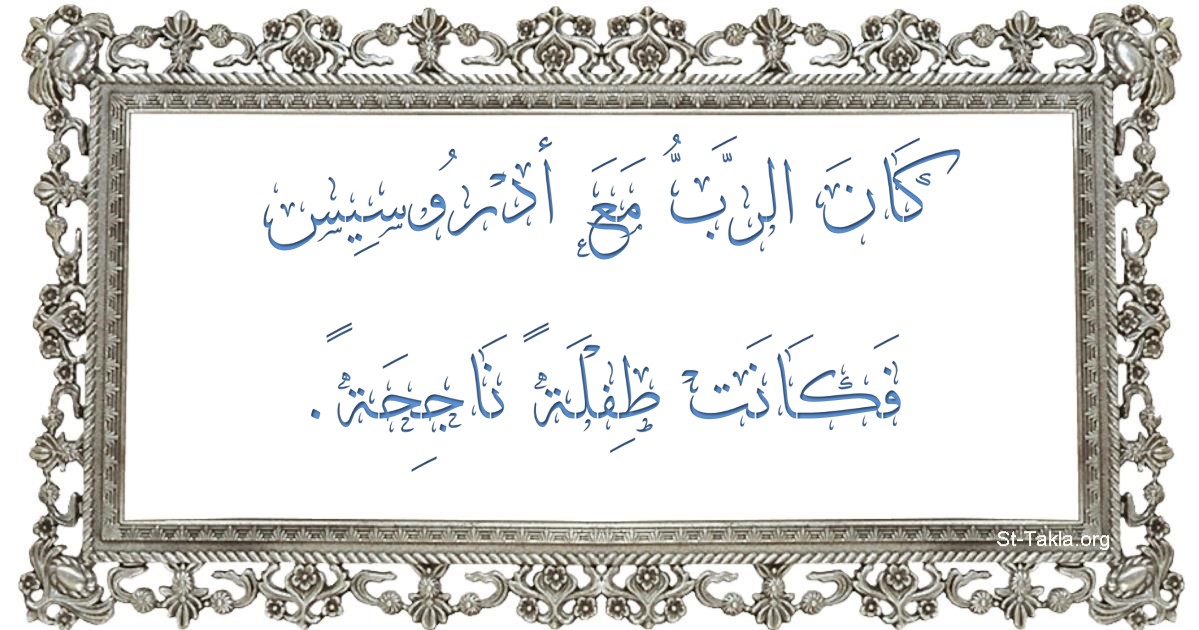 كَانَ الرَّبُّ مَعَ أدْرُوسِيس
فَكَانَتْ طِفْلَةً نَاجِحَةً.
St-Takla.org